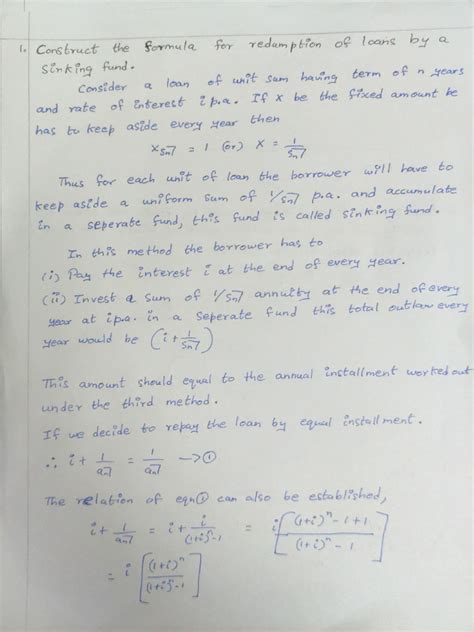 1. Construct the formula for redumption of loans by a
sinking fund.
Consider a loan of unit sum having term of n years
and rate of interest i p.a. If x be the fixed amount be
has to keep aside every year then
x s̅n̅7 = 1 (or) x = 1/sn7
Thus for each unit of loan the borrower will have to
keep aside a uniform sum of 1/sn7 p.a. and accumulate
in a seperate fund, this fund is called sinking fund.
In this method the borrower has to
(i) Pay the interest i at the end of every year.
(ii) Invest a sum of 1/sn7 annuity at the end of every
year at i p.a. in a seperate fund this total outlaw every
year would be (i + 1/sn7)
This amount should equal to the annual installment worked out
under the third method.
If we decide to repay the loan by equal installment.
∴ i + 1/an7 = 1/an7 → ①
The relation of eqn ① can also be established,
i + 1/an7 = i + i/(1+i)^n - 1 = i[(1+i)^n - 1 + 1/(1+i)^n - 1]
= i[(1+i)^n/(1+i)^n - 1]